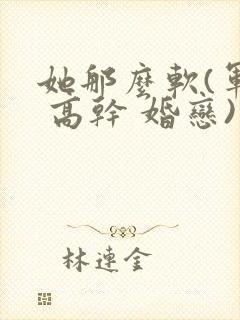 她那麼軟(軍
高幹 婚戀)
林連金